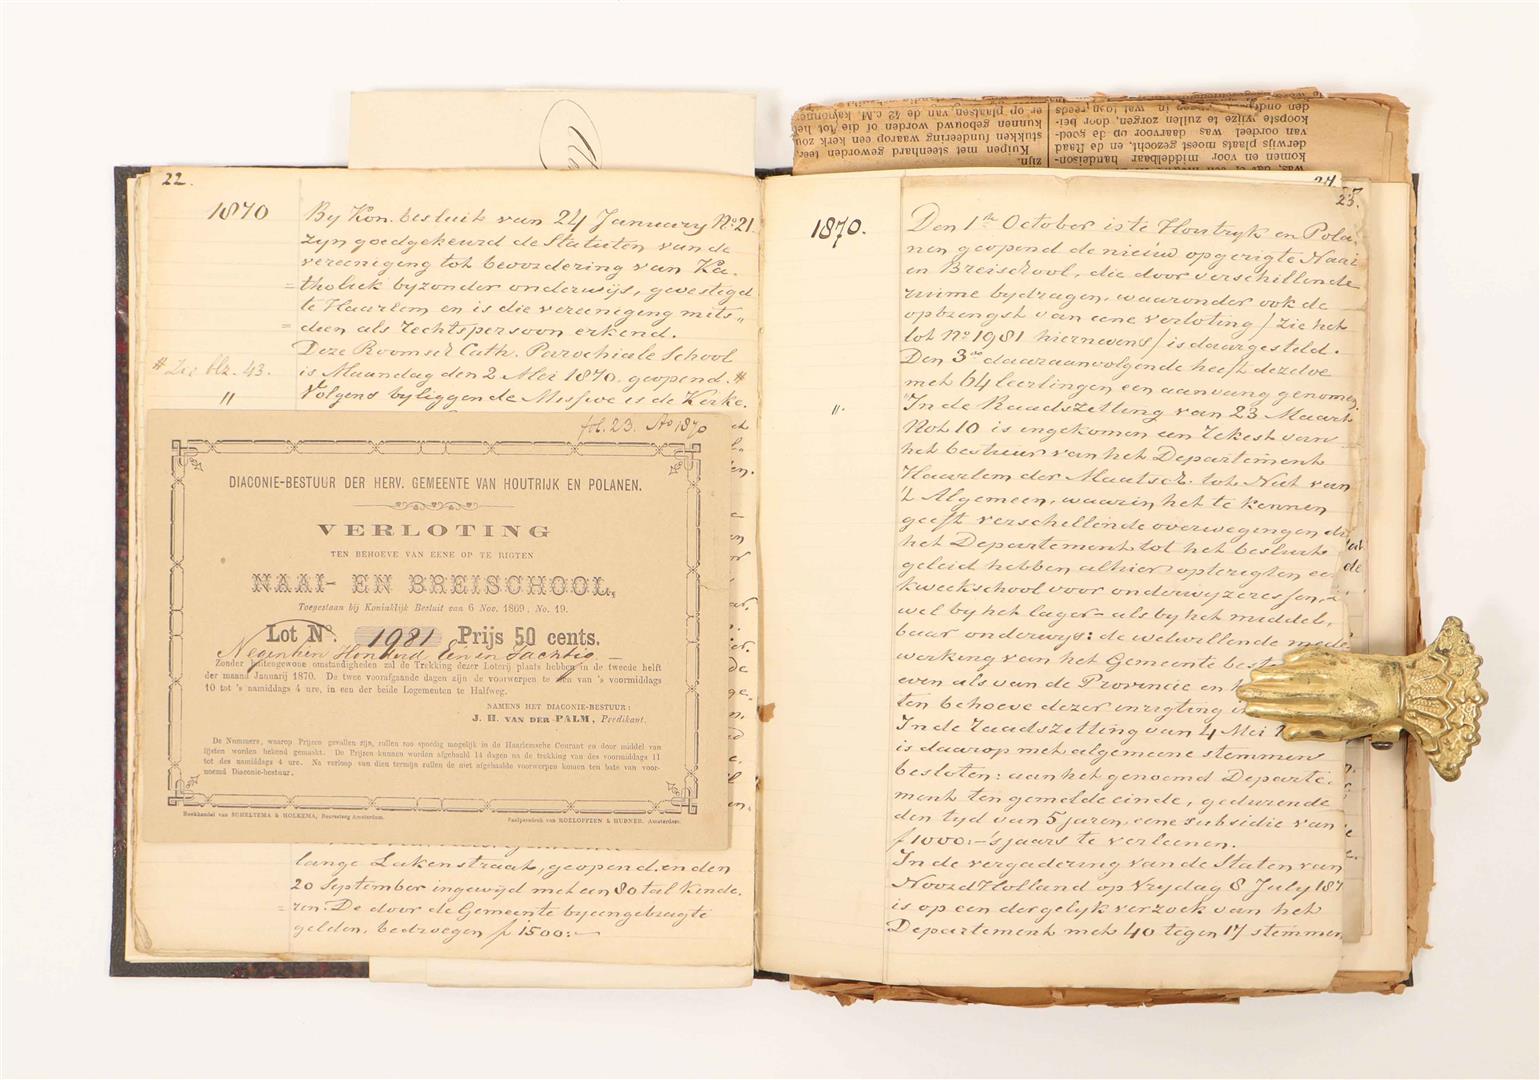 22.
1870
By Kon. besluit van 24 January No. 21
zyn goedgekeurd de Statuten van de
vereeniging tot bevordering van Ka-
=tholiek byzonder onderwijs, gevestigd
te Haarlem en is die vereeniging mits„
=dien als rechtspersoon erkend.
Deze Roomsch Cath. Parochiale School
# Zie blz. 43.
is Maandag den 2 Mei 1870 geopend. #
"
Volgens byliggende Missive is de Kerke.
fol. 23. Ao 1870
DIACONIE-BESTUUR DER HERV. GEMEENTE VAN HOUTRIJK EN POLANEN.
VERLOTING
TEN BEHOEVE VAN EENE OP TE RIGTEN
NAAI- EN BREISCHOOL,
Toegestaan bij Koninklijk Besluit van 6 Nov. 1869, No. 19.
Lot No. 1981 Prijs 50 cents.
Negentien Honderd Een en Tachtig
Zonder buitengewone omstandigheden zal de Trekking dezer Loterij plaats hebben in de tweede helft
der maand Januarij 1870. De twee voorafgaande dagen zijn de voorwerpen te zien van 's voormiddags
10 tot 's namiddags 4 ure, in een der beide Logementen te Halfweg.
NAMENS HET DIACONIE-BESTUUR:
J. H. VAN DER PALM, Predikant.
De Nummers, waarop Prijzen gevallen zijn, zullen zoo spoedig mogelijk in de Haarlemsche Courant en door middel van
lijsten worden bekend gemaakt. De Prijzen kunnen worden afgehaald 14 dagen na de trekking van des voormiddags 11
tot des namiddags 4 ure. Na verloop van dien termijn zullen de niet afgehaalde voorwerpen komen ten bate van voor-
noemd Diaconie-bestuur.
Boekhandel van SCHELTEMA & HOLKEMA, Beurssteeg Amsterdam.
Snelpersdruk van ROELOFFZEN & HÜBNER. Amsterdam.
lange Lakenstraat, geopend en den
20 September ingewijd met een 80 tal kinde.
=ren. De door de Gemeente byeengebragte
gelden, bedroegen f 1500:-
24
23.
1870.
Den 1ste October is te Houtryk en Pola-
nen geopend de nieuw opgerigte Naai
en Breischool, die door verschillende
ruime bydragen, waaronder ook de
opbrengst van eene verloting / zie het
lot No 1981 hiernevens / is daargesteld.
Den 3den daaraanvolgende heeft dezelve
met 64 leerlingen een aanvang genomen.
".
In de Raadszetting van 23 Maart
Not. 10 is ingekomen een rekest van
het bestuur van het Departement
Haarlem der Maatsch. tot Nut van
't Algemeen, waarin het te kennen
geeft verschillende overwegingen die
het Departement tot het besluit
geleid hebben alhier opterigten een
kweekschool voor onderwyzeressen,
wel by het lager- als by het middel-
baar onderwijs: de welwillende mede
werking van het Gemeente best
even als van de Provincie en
ten behoeve dezer inrigting
In de raadszetting van 4 Mei
is daarop met algemeene stemmen
besloten: aan het genoemd Departe-
ment ten gemelde einde, gedurende
den tyd van 5 jaren, eene subsidie van
f 1000,- 's jaars te verleenen.
In de vergadering van de Staten van
Noord Holland op Vrydag 8 July 187
is op een dergelyk verzoek van het
Departement met 40 tegen 17 stemmen
zijn.
Kuipen met steenhard geworden leer,
stukken fundering waarop een kerk zou
kunnen gebouwd worden of die tot het
er op plaatsen van de 42 c.M. kanonnen
komen en voor middelbaar handelson-
derwijs plaats moest gezocht, en de Raad
van oordeel was daarvoor op de goed-
koopste wijze te zullen zorgen, door bei-